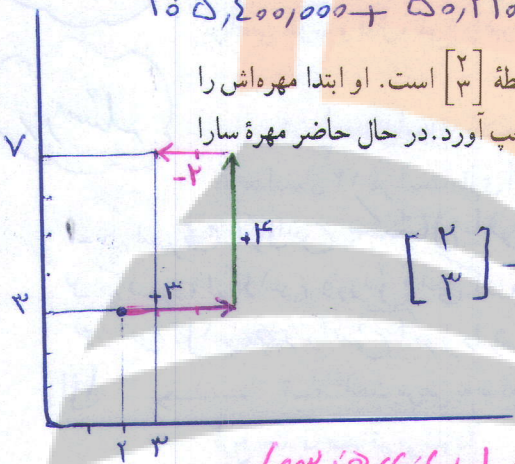 ۱۰۵,۴۰۰,۰۰۰ + ۵۰,۲۱۰
طهٔ [۲ ۳] است. او ابتدا مهره‌اش را
چپ آورد. در حال حاضر مهرهٔ سارا
۷
-۲
+۴
[۲ ۳]
+۳
۳
۲ ۳